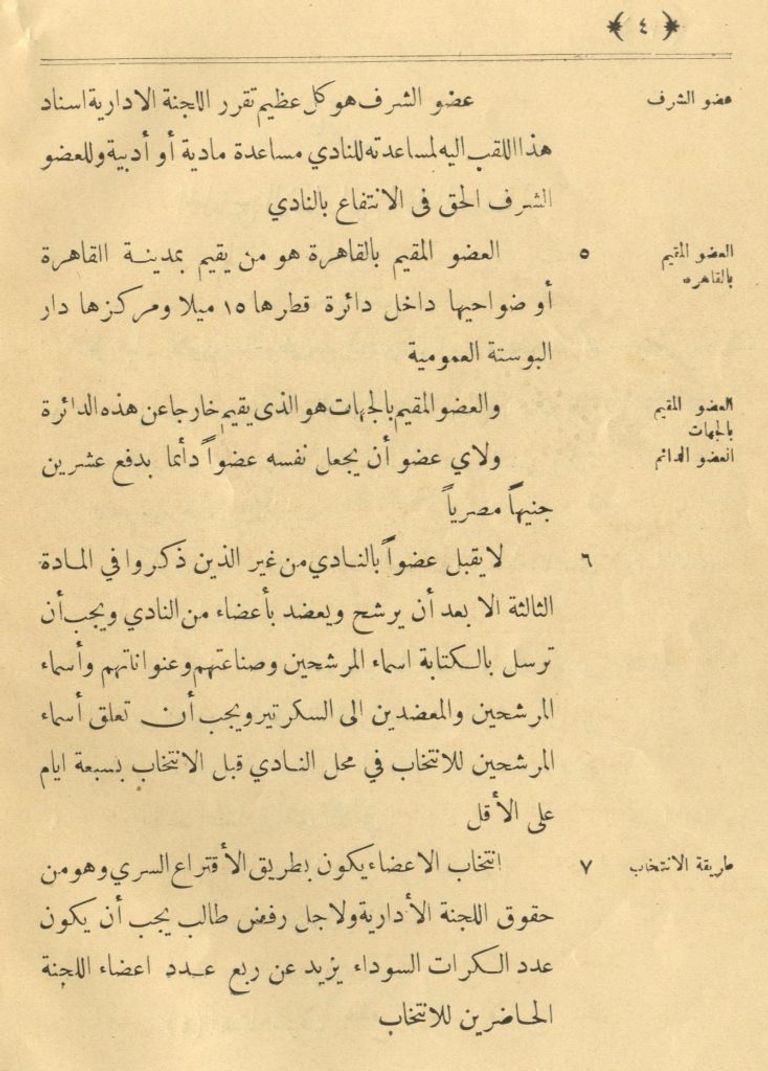 ﴿ ٤ ﴾
عضو الشرف
عضو الشرف هو كل عظيم تقرر اللجنة الادارية اسناد
هذا اللقب اليه لمساعدته للنادي مساعدة مادية أو أدبية وللعضو
الشرف الحق فى الانتفاع بالنادي
العضو المقيم
بالقاهره
٥ العضو المقيم بالقاهرة هو من يقيم بمدينة القاهرة
أو ضواحيها داخل دائرة قطرها ١٥ ميلا ومركزها دار
البوستة العمومية
العضو المقيم
بالجهات
والعضو المقيم بالجهات هو الذى يقيم خارجا عن هذه الدائرة
العضو الدائم
ولاي عضو أن يجعل نفسه عضواً دأئما بدفع عشرين
جنيهاً مصرياً
٦ لا يقبل عضواً بالنادي من غير الذين ذكروا في المادة
الثالثة الا بعد أن يرشح ويعضد بأعضاء من النادي ويجب أن
ترسل بالكتابة اسماء المرشحين وصناعتهم وعنواناتهم وأسماء
المرشحين والمعضدين الى السكرتير ويجب أن تعلق أسماء
المرشحين للانتخاب في محل النادي قبل الانتخاب بسبعة ايام
على الأقل
طريقة الانتخاب
٧ انتخاب الاعضاء يكون بطريق الأقتراع السري وهو من
حقوق اللجنة الأدارية ولاجل رفض طالب يجب أن يكون
عدد الكرات السوداء يزيد عن ربع عدد اعضاء اللجنة
الحاضرين للانتخاب